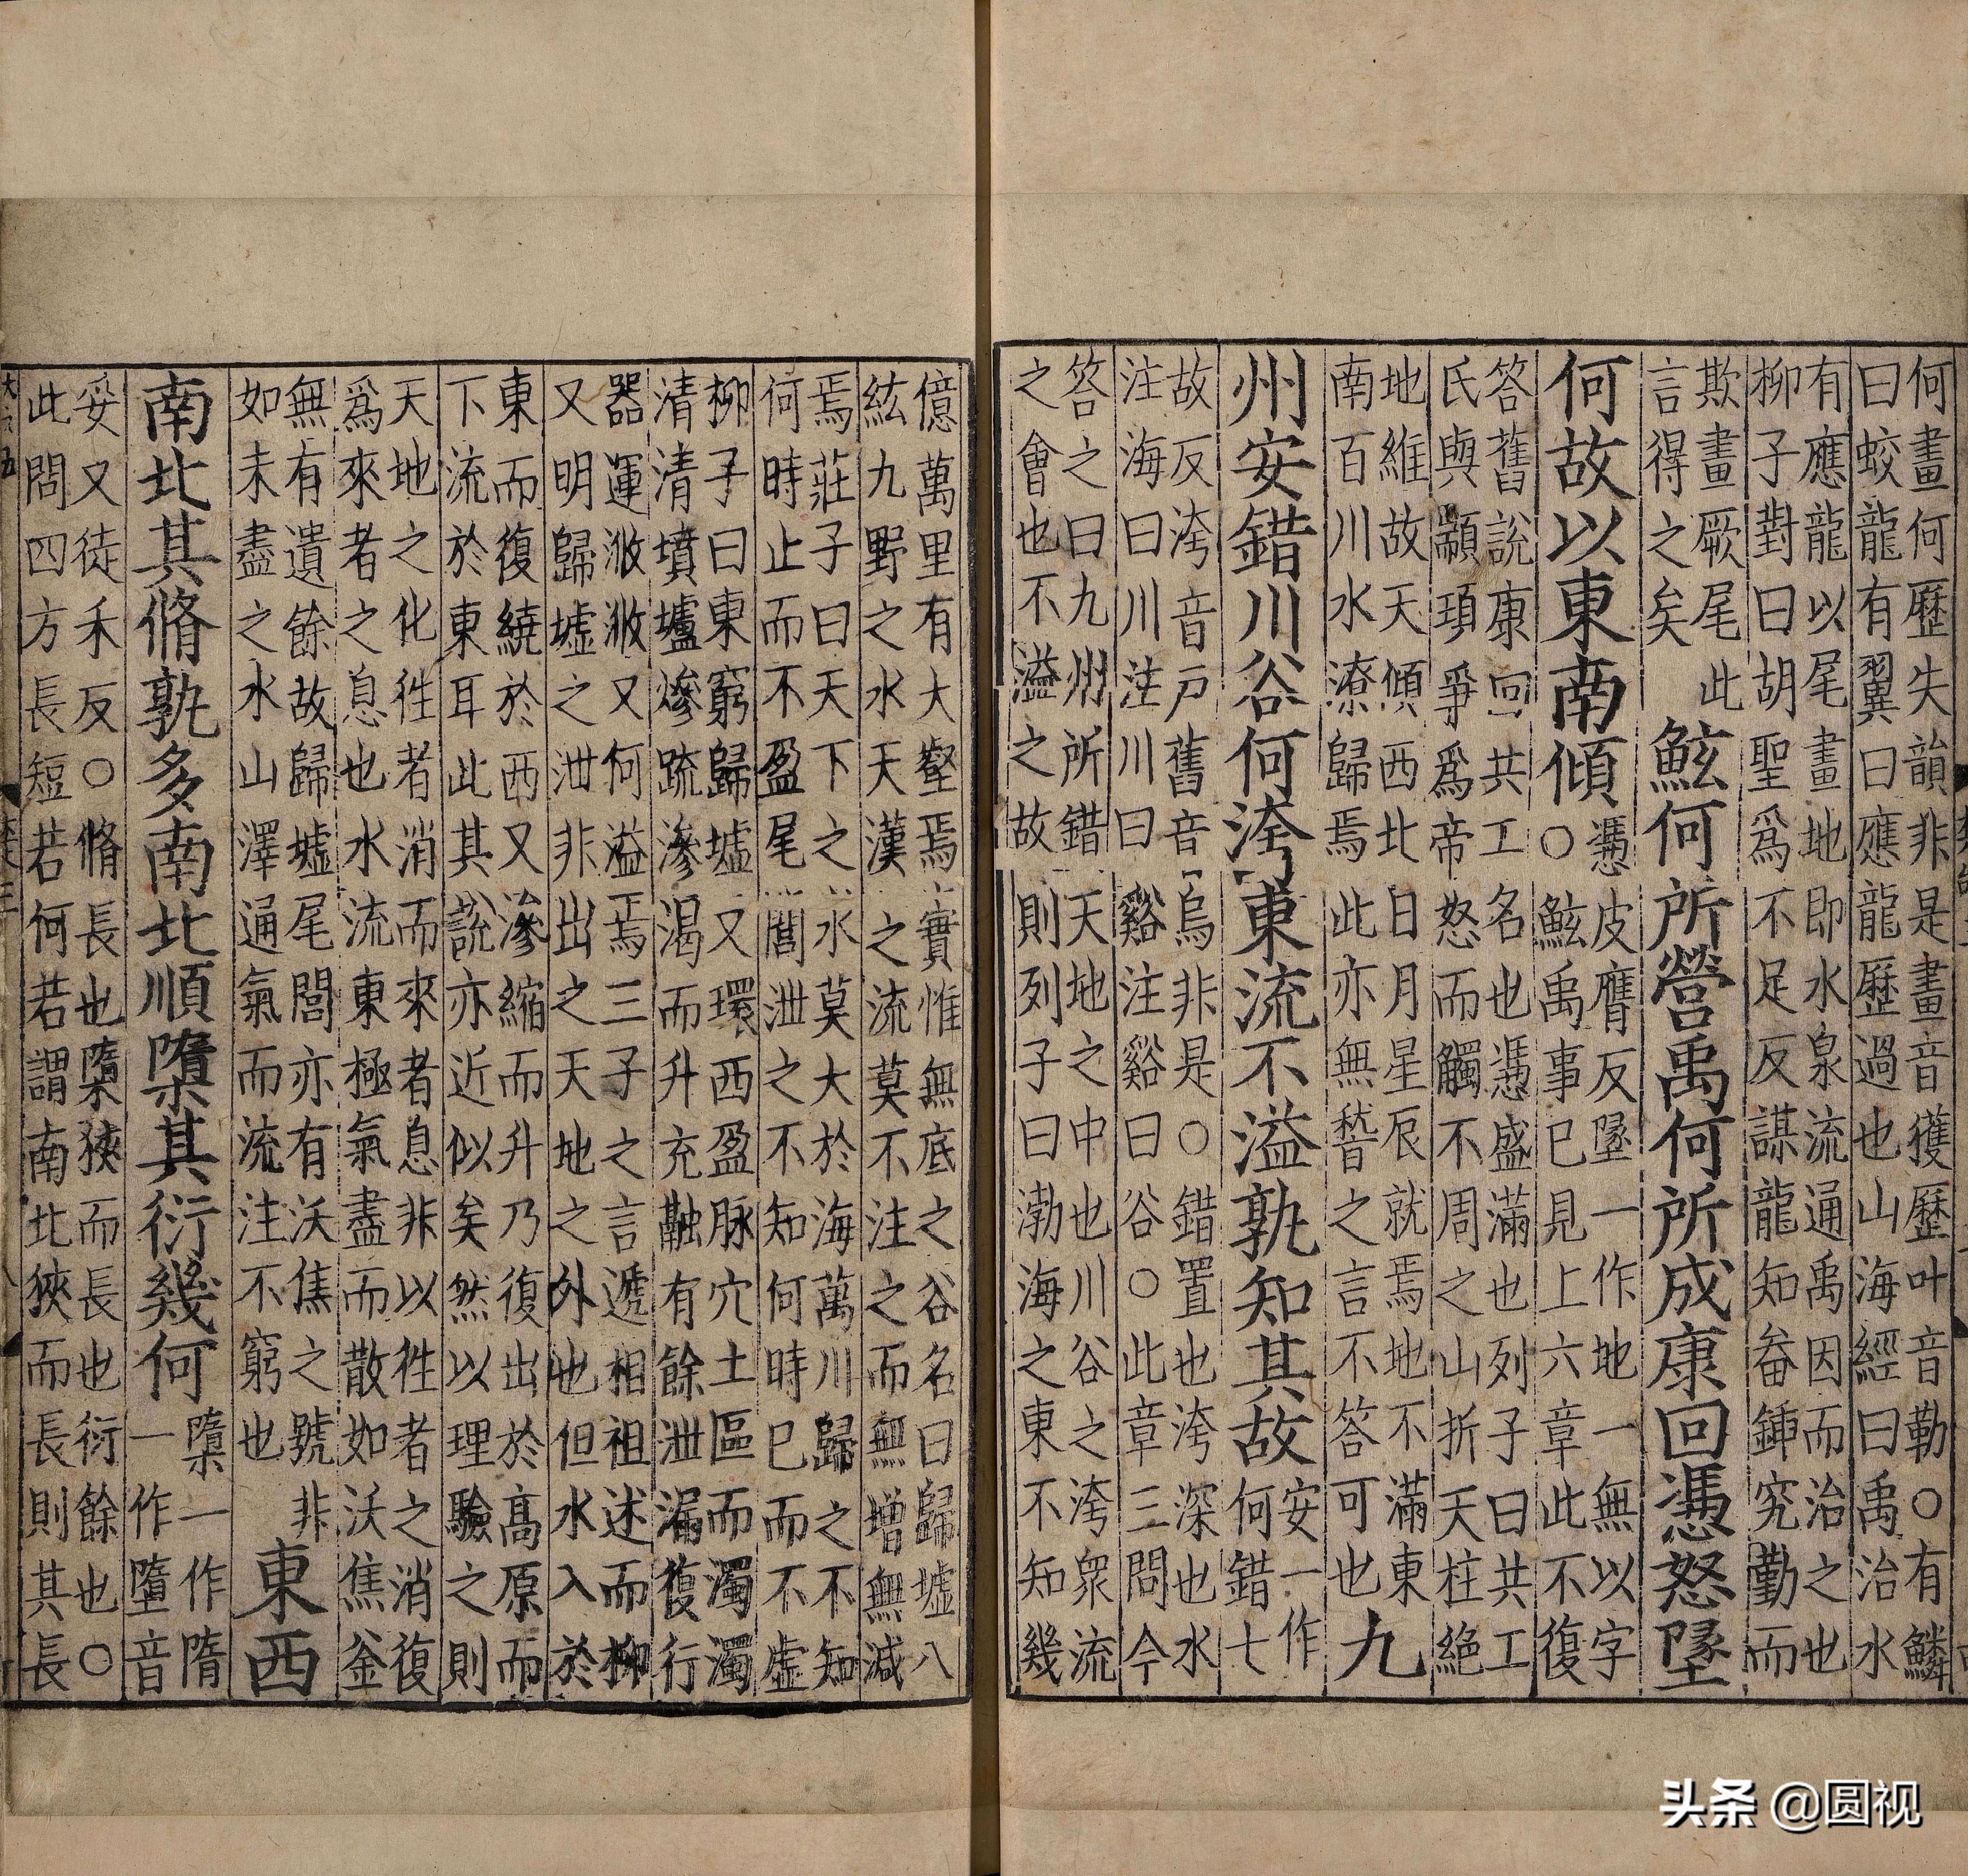 何畫何歷失韻非是畫音獲歷叶音勒○有鱗
曰蛟龍有翼曰應龍歷過也山海經曰禹治水
有應龍以尾畫地即水泉流通禹因而治之也
柳子對曰胡聖爲不足反謀龍知畚鍤究勤而
欺畫厥尾此
言得之矣
鮌何所營禹何所成康回憑怒墜
何故以東南傾
憑皮膺反墜一作地一無以字
○鮌禹事已見上六章此不復
答舊說康回共工名也憑盛滿也列子曰共工
氏與顓頊爭爲帝怒而觸不周之山折天柱絕
地維故天傾西北日月星辰就焉地不滿東
南百川水潦歸焉此亦無稽之言不答可也
九
州安錯川谷何洿東流不溢孰知其故
安一作
何錯七
故反洿音戸舊音烏非是○錯置也洿深也水
注海曰川注川曰谿注谿曰谷○此章三問今
答之曰九州所錯天地之中也川谷之洿衆流
之會也不溢之故則列子曰渤海之東不知幾
億萬里有大壑焉實惟無底之谷名曰歸墟八
紘九野之水天漢之流莫不注之而無增無減
焉莊子曰天下之水莫大於海萬川歸之不知
何時止而不盈尾閭泄之不知何時已而不虛
柳子曰東窮歸墟又環西盈脉穴土區而濁濁
清清墳壚燥疏滲渴而升充融有餘泄漏復行
器運浟浟又何溢焉三子之言遞相祖述而柳
又明歸墟之泄非出之天地之外也但水入於
東而復繞於西又滲縮而升乃復出於高原而
下流於東耳此其說亦近似矣然以理驗之則
天地之化徃者消而來者息非以徃者之消復
爲來者之息也水流東極氣盡而散如沃焦釜
無有遺餘故歸墟尾閭亦有沃焦之號非
如未盡之水山澤通氣而流注不窮也
東西
南北其脩孰多南北順㯐其衍幾何
㯐一作隋
一作墮音
妥又徒禾反○脩長也㯐狹而長也衍餘也○
此問四方長短若何若謂南北狹而長則其長
头条 @圆视